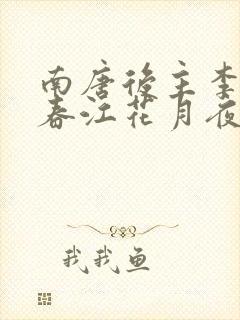 南唐後主李
春江花月夜
我我鱼